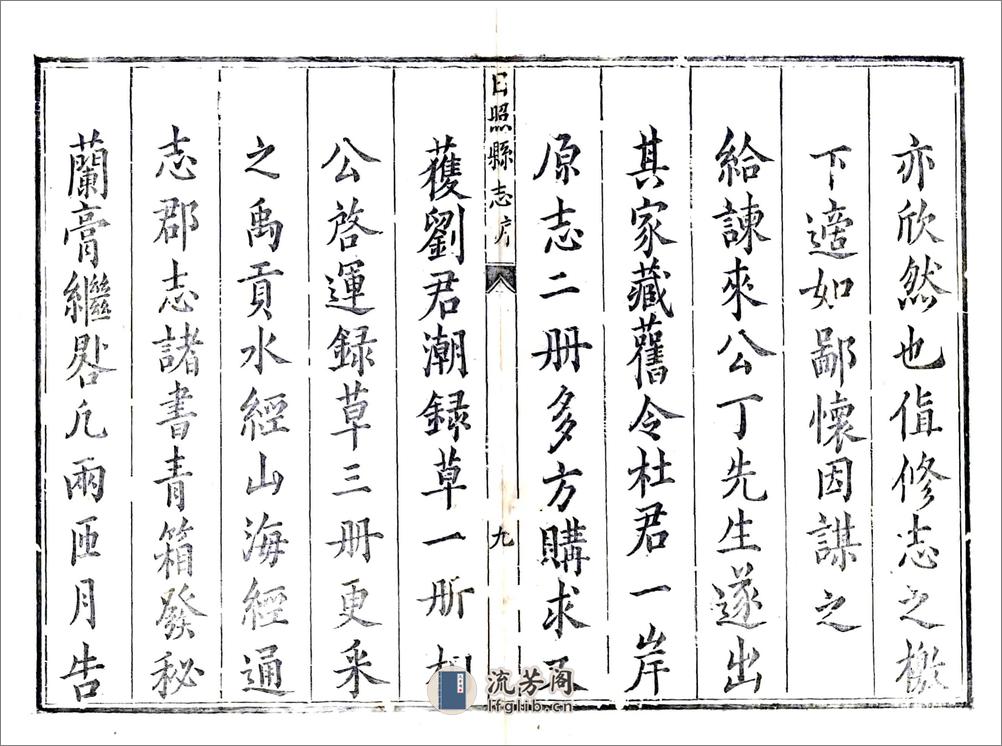 亦欣然也值修志之檄
下適如鄙懷因謀之
給諫來公丁先生遂出
其家藏舊令杜君一岸
原志二冊多方購求
日照縣志序
九
獲劉君潮録草一册
公啓運録草三册更采
之禹貢水經山海經通
志郡志諸書青箱發秘
蘭膏繼晷凡兩匝月告
流芳阁
lfglib.cn